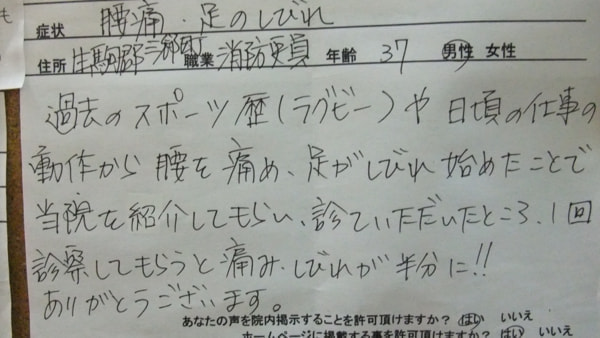 症状 腰痛・足のしびれ
住所 生駒郡三郷町 職業 消防吏員 年齢 37 男性 女性
過去のスポーツ歴(ラグビー)や日頃の仕事の
動作から腰を痛め、足がしびれ始めたことで
当院を紹介してもらい、診ていただいたところ、1回
診察してもらうと痛み、しびれが半分に!!
ありがとうございます。
あなたの声を院内掲示することを許可頂けますか? はい いいえ
ホームページに掲載する事を許可頂けますか? はい いいえ